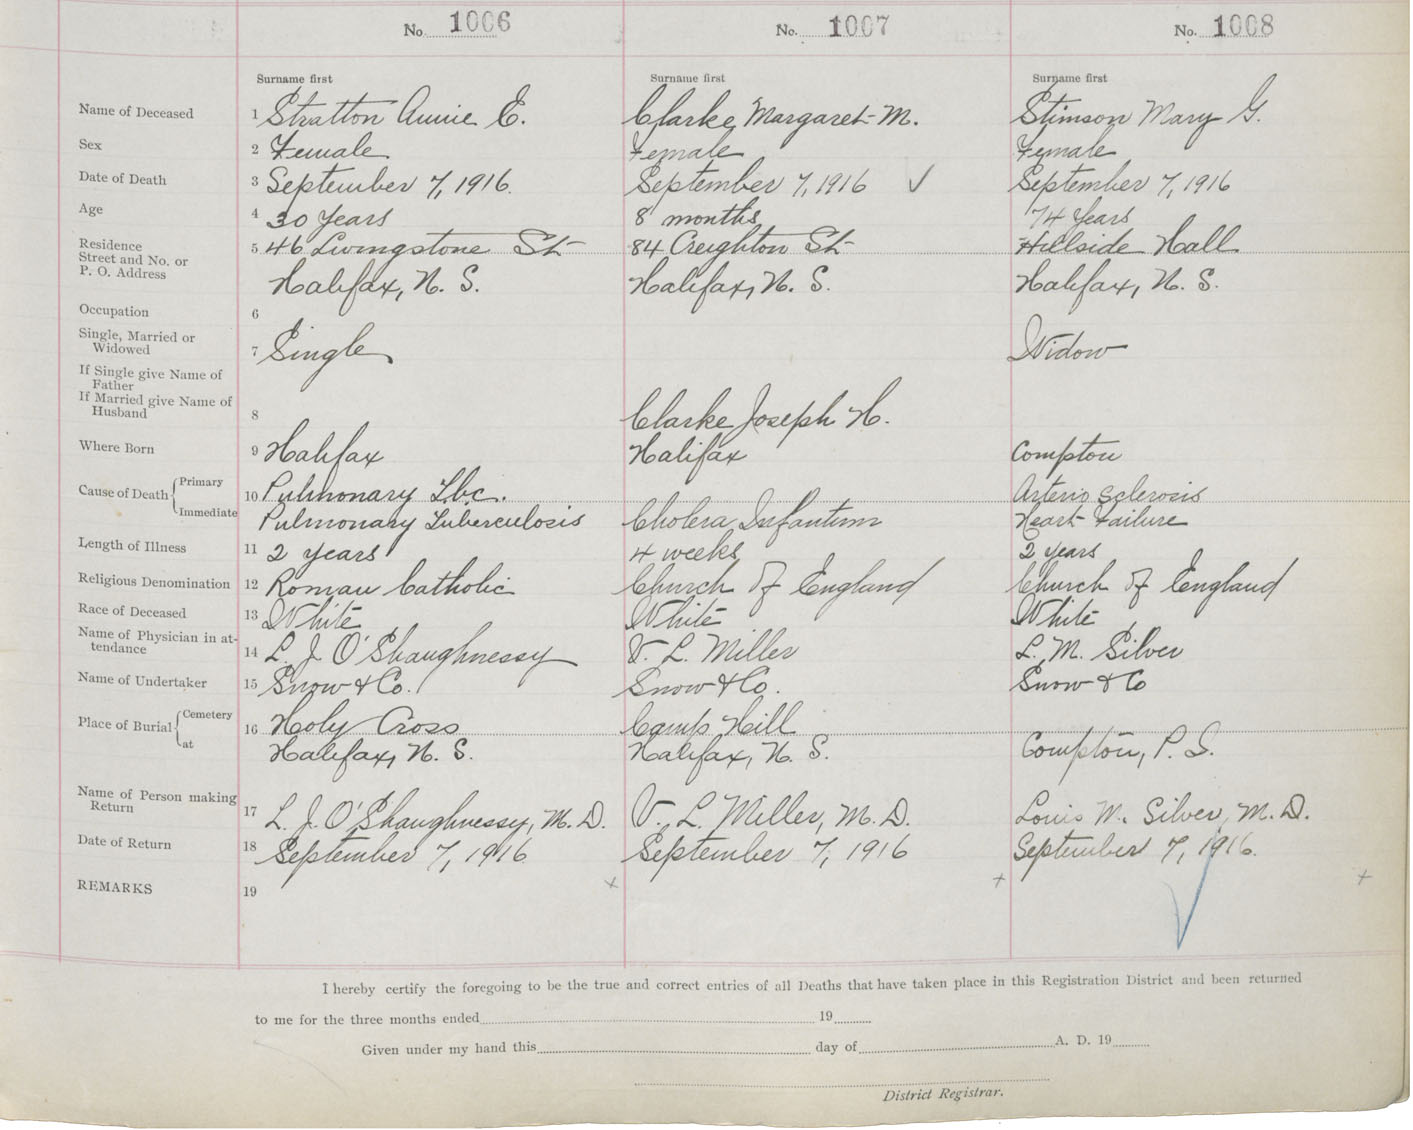 No. 1006 No. 1007 No. 1008
Surname first Surname first Surname first
Name of Deceased 1 Stratton Annie E. Clarke Margaret M. Stimson Mary G.
Sex 2 Female Female Female
Date of Death 3 September 7, 1916. September 7, 1916 September 7, 1916
Age 4 30 Years 8 months 74 Years
Residence 5 46 Livingstone St 84 Creighton St Hillside Hall
Street and No. or
P. O. Address Halifax, N. S. Halifax, N. S. Halifax, N. S.
Occupation 6
Single, Married or
Widowed 7 Single Widow
If Single give Name of
Father
If Married give Name of
Husband 8 Clarke Joseph H.
Where Born 9 Halifax Halifax Compton
Cause of Death Primary 10 Pulmonary Tbc. Arterio Sclerosis
Immediate Pulmonary Tuberculosis Cholera Infantum Heart Failure
Length of Illness 11 2 years 4 weeks 2 years
Religious Denomination 12 Roman Catholic Church of England Church of England
Race of Deceased 13 White White White
Name of Physician in at-
tendance 14 L. J. O'Shaughnessy V. L. Miller L. M. Silver
Name of Undertaker 15 Snow & Co. Snow & Co. Snow & Co
Place of Burial Cemetery 16 Holy Cross Camp Hill
at Halifax, N. S. Halifax, N. S. Compton, P.
Name of Person making
Return 17 L. J. O'Shaughnessy, M. D. V. L. Miller, M. D. Louis M. Silver, M. D.
Date of Return 18 September 7, 1916 September 7, 1916 September 7, 1916.
REMARKS 19
I hereby certify the foregoing to be the true and correct entries of all Deaths that have taken place in this Registration District and been returned
to me for the three months ended 19
Given under my hand this day of A. D. 19
District Registrar.